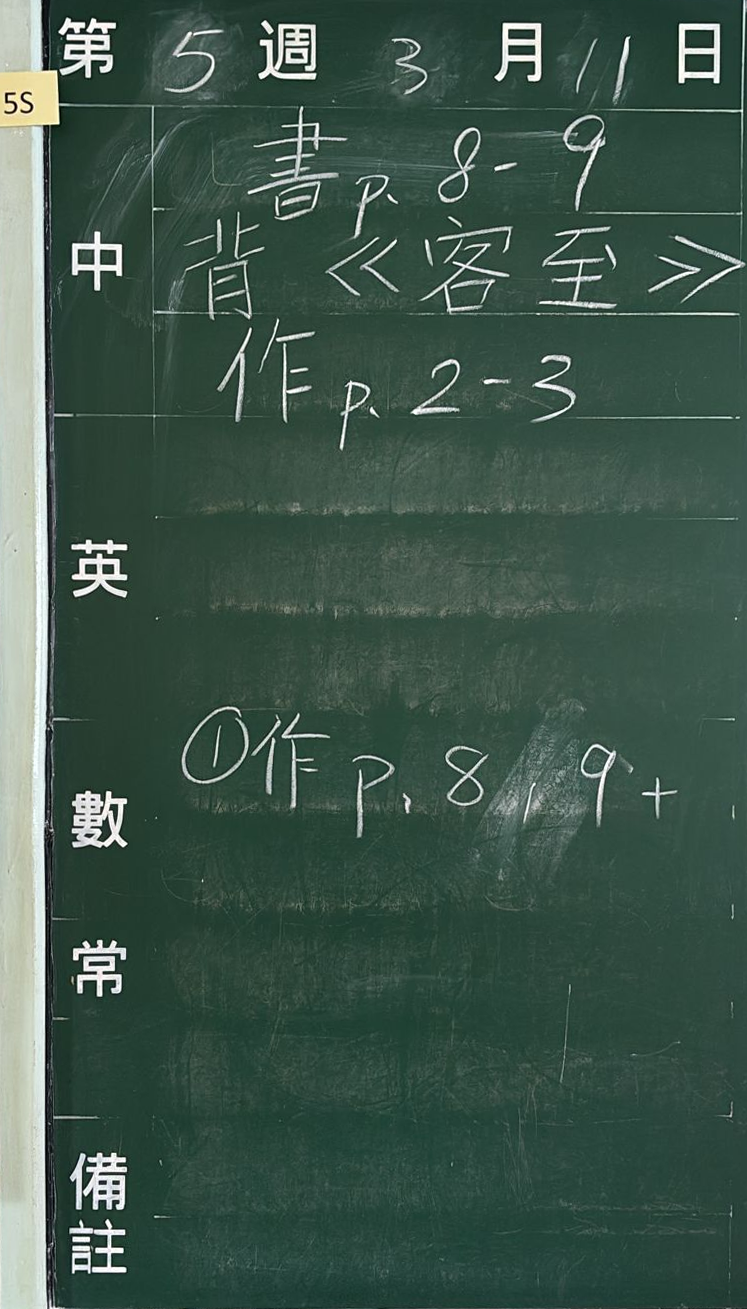 第5週3月11日
5S
中
書p. 8-9
背《客至》
作p. 2-3
英
數
①作p. 8, 9+
常
備註